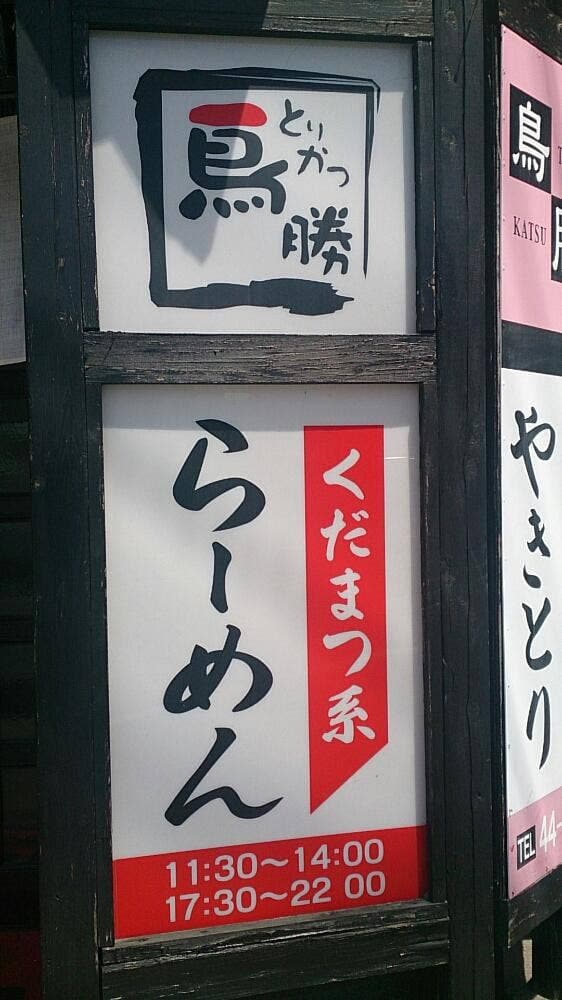 鳥
とりかつ
勝
くだまつ系
らーめん
11:30～14:00
17:30～22 00
鳥
KATSU
やきとり
TEL 44-